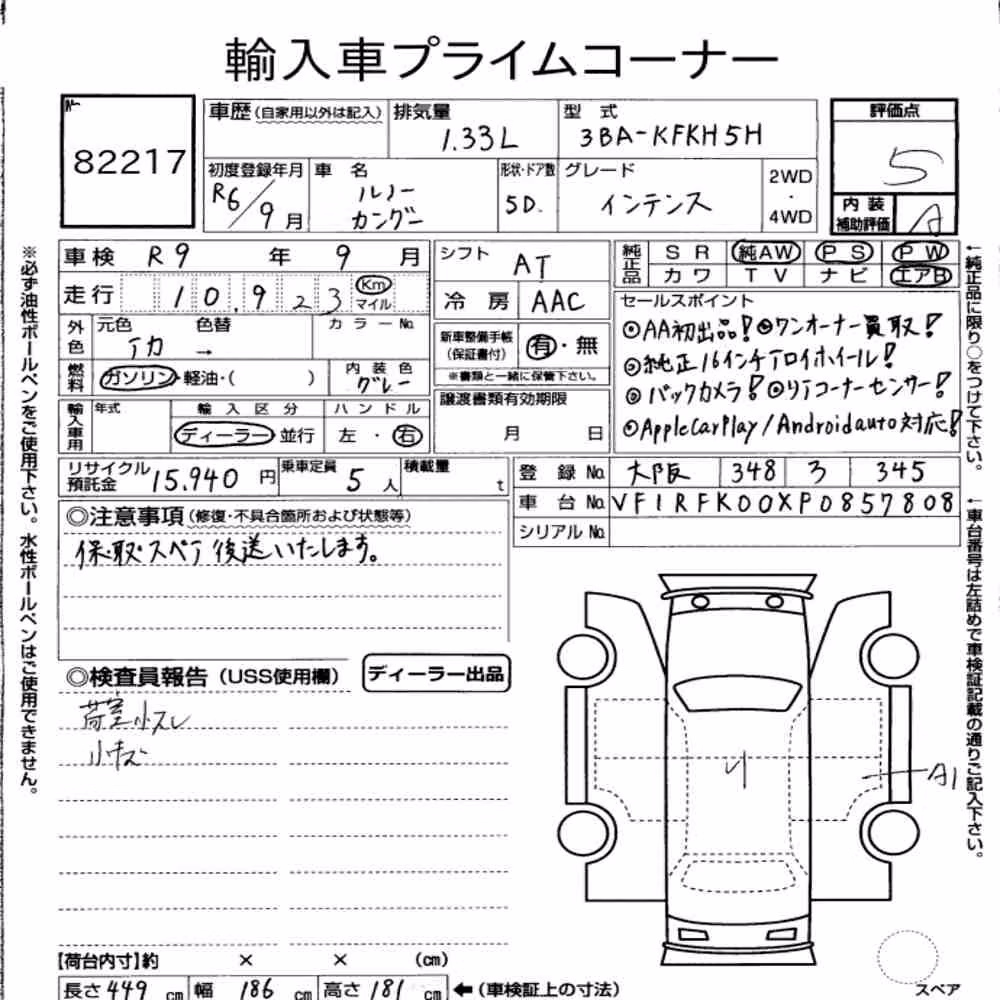 輸入車プライムコーナー
No.
82217
車歴(自家用以外は記入)
排気量
1.33L
型式
3BA-KFKH5H
評価点
5
初度登録年月
R6/9月
車名
ルノー
カングー
形状・ドア数
5D.
グレード
インテンス
2WD
・
4WD
内装
補助評価
A
車検 R9年 9月
走行 10,923 Km
マイル
外色
元色 色替
アカ →
カラーNo.
燃料
ガソリン・軽油・( )
内装色
グレー
輸入車用
年式
輸入区分
ディーラー 並行
ハンドル
左・右
シフト AT
冷房 AAC
新車整備手帳
(保証書付)
有・無
※書類と一緒に保管下さい。
譲渡書類有効期限
月 日
純正品
SR 純AW PS PW
カワ TV ナビ エアB
セールスポイント
◎AA初出品! ◎ワンオーナー買取!
◎純正16インチアロイホイール!
◎バックカメラ! ◎リアコーナーセンサー!
◎AppleCarPlay/Androidauto対応!
リサイクル
預託金
15.940円
乗車定員
5人
積載量
t
登録No. 大阪 348 ろ 345
車台No. VF1RFK00XP0857808
シリアルNo.
◎注意事項(修復・不具合箇所および状態等)
保.取.スペア後送いたします。
◎検査員報告(USS使用欄)
ディーラー出品
荷室小スレ
小キズ
A1
【荷台内寸】約 × × (cm)
長さ 449cm 幅 186cm 高さ 181cm ←(車検証上の寸法)
スペア
※必ず油性ボールペンをご使用下さい。水性ボールペンはご使用できません。
←純正品に限り○をつけて下さい。
←車台番号は左詰めで車検証記載の通りご記入下さい。